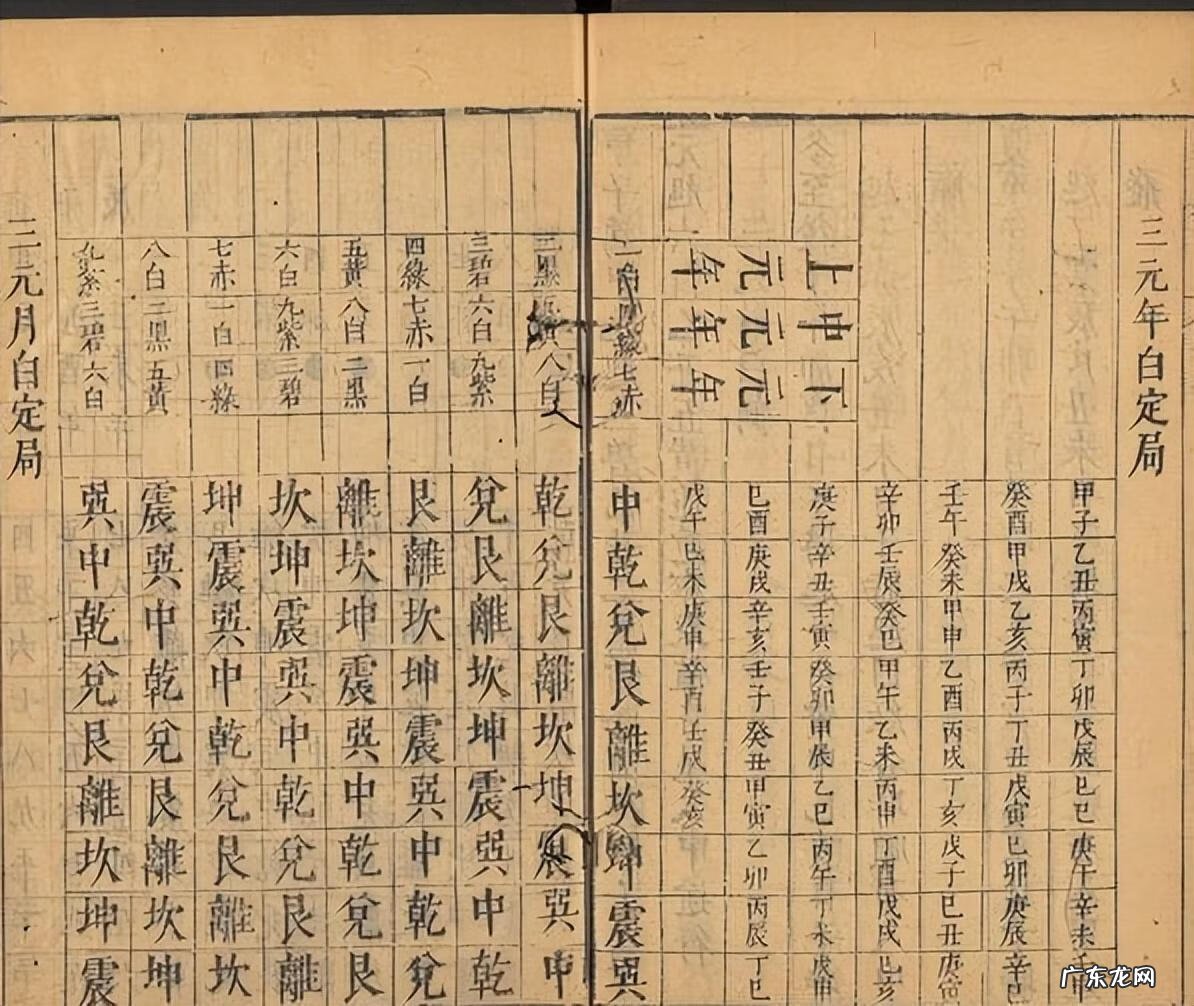 三元年白定局
甲子乙丑丙寅丁卯戊辰巳巳庚午辛未壬申
癸酉甲戌乙亥丙子丁丑戊寅巳卯庚辰辛巳
壬午癸未甲申乙酉丙戌丁亥戊子巳丑庚寅
辛卯壬辰癸巳甲午乙未丙申丁酉戊戌巳亥
上元年
中元年
下元年
庚子辛丑壬寅癸卯甲辰乙巳丙午丁未戊申
巳酉庚戌辛亥壬子癸丑甲寅乙卯丙辰丁巳
戊午巳未庚申辛酉壬戌癸亥
一白四綠七赤 中乾兌艮離坎坤震巽
二黑五黃八白 乾兌艮離坎坤震巽中
三碧六白九紫 兌艮離坎坤震巽中乾
四綠七赤一白 艮離坎坤震巽中乾兌
五黃八白二黑 離坎坤震巽中乾兌艮
六白九紫三碧 坎坤震巽中乾兌艮離
七赤一白四綠 坤震巽中乾兌艮離坎
八白二黑五黃 震巽中乾兌艮離坎坤
九紫三碧六白 巽中乾兌艮離坎坤震
三元月白定局
广东龙网